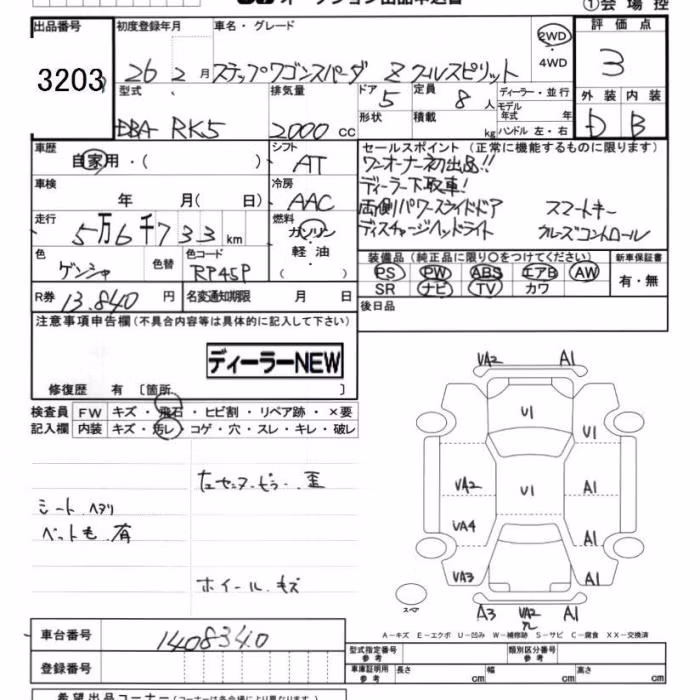 ①会場控
出品番号
3203
初度登録年月
26 2月
車名・グレード
ステップワゴンスパーダ Z クールスピリット
2WD
4WD
評価点
3
型式
DBA- RK5
排気量
2000 cc
ドア
5
定員
8人
ディーラー・並行
モデル年式 年
ハンドル 左・右
形状
積載
kg
外装
D
内装
B
車歴
自家用・( )
シフト
AT
セールスポイント(正常に機能するものに限ります)
ワンオーナー初出品!!
ディーラー下取車!
両側パワースライドドア スマートキー
ディスチャージヘッドライト クルーズコントロール
車検
年 月( 日)
冷房
AAC
走行
5万6千733km
燃料
ガソリン・
軽油・
( )
色
ゲンシャ
色替
色コード
RP45P
装備品(純正品に限り○をつけてください)
PS PW ABS エアB AW
SR ナビ TV カワ
新車保証書
有・無
R券
13.840円
名変通知期限 月 日
後日品
注意事項申告欄(不具合内容等は具体的に記入して下さい)
ディーラーNEW
修復歴 有〔箇所 〕
検査員記入欄
FW キズ・飛石・ヒビ割・リペア跡・×要
内装 キズ・汚レ・コゲ・穴・スレ・キレ・破レ
左センターピラー 歪
シート ヘタリ
ペット毛 有
ホイール キズ
UA2 A1
U1
U1
UA2 U1 A1
UA4 A1
UA3 A1
スペア
A3 UA2 A1
A-キズ E-エクボ U-凹み W-補修跡 S-サビ C-腐食 XX-交換済
車台番号
1408340
登録番号
型式指定番号 参考
類別区分番号 参考
車庫証明用 参考
長さ cm
幅 cm
高さ cm
希望出品コーナー(コーナーは各会場により異なります)